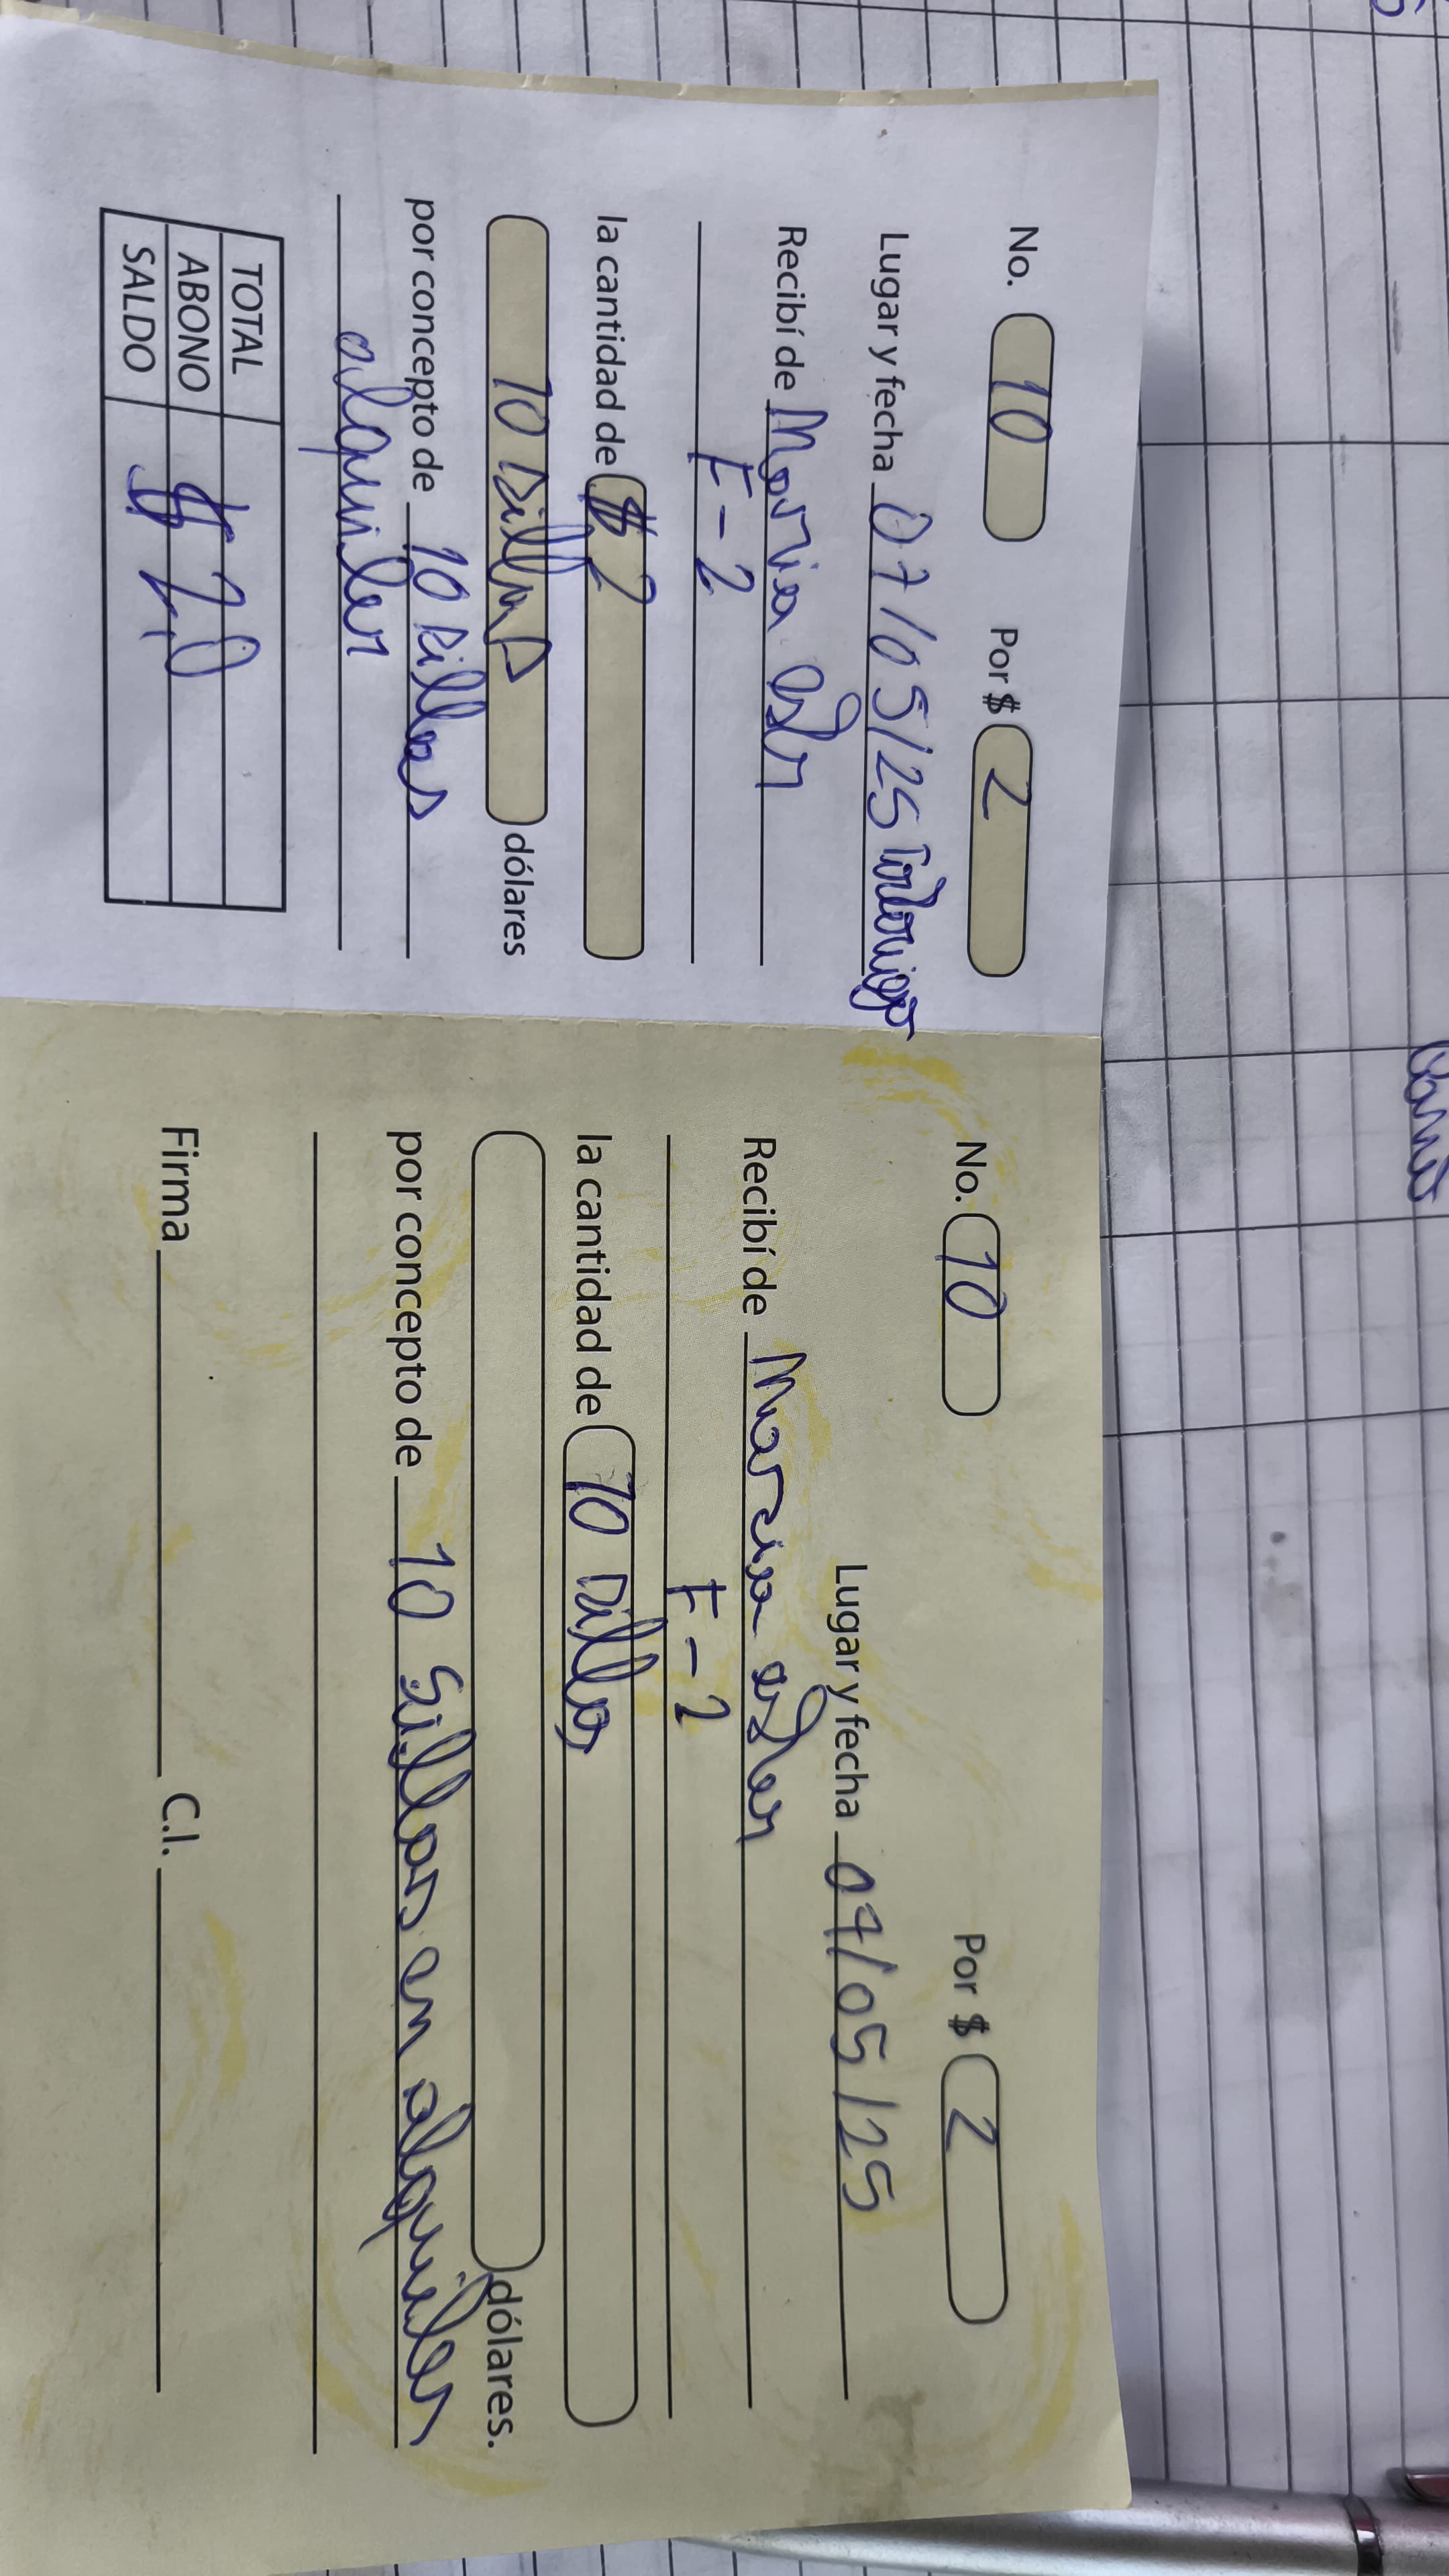 No. 10 Por $ 2
Lugar y fecha 07/05/25
Recibí de Maria
F-2
la cantidad de $ 2
10 sillas dólares
por concepto de 10 sillas
alquiler
TOTAL
ABONO $ 2,0
SALDO
No. 10 Por $ 2
Lugar y fecha 07/05/25
Recibí de Maria
F-2
la cantidad de 10 sillas
dólares.
por concepto de 10 Sillas en alquiler
Firma C.I.